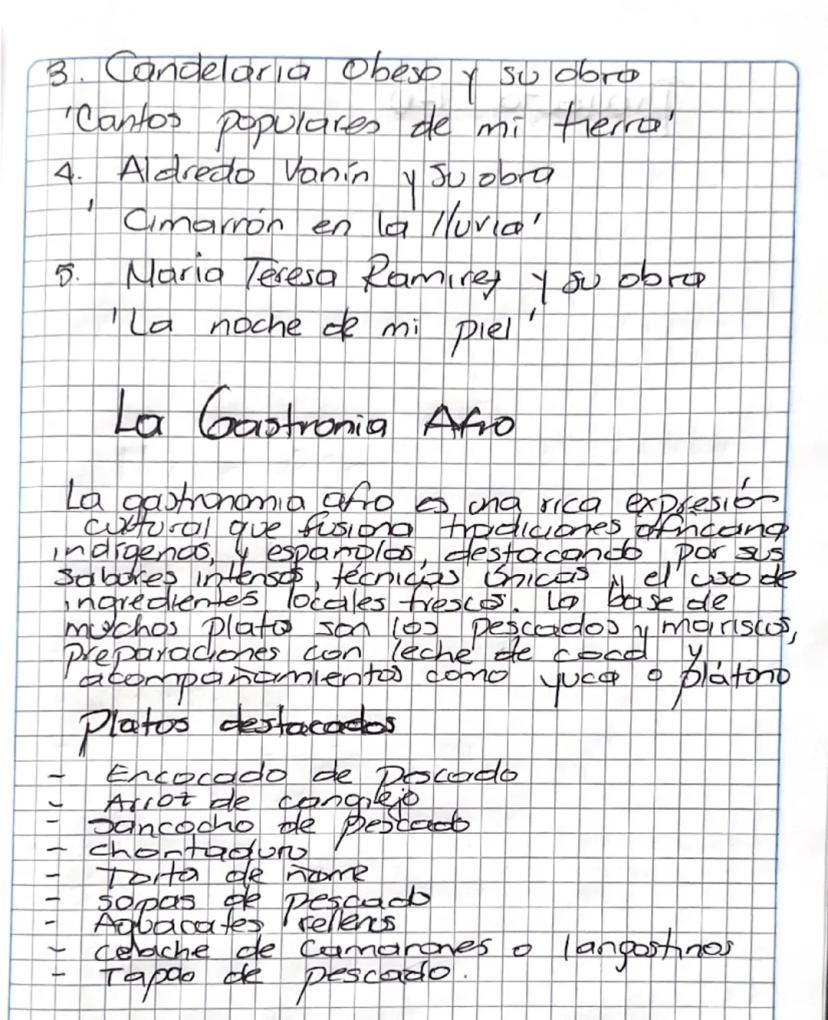 3. Candelaria Obeso y su obra
'Cantos populares de mi tierra'
4. Aldredo Vanín y su obra
' Cimarrón en la lluvia'
5. Maria Teresa Ramirez y su obra
'La noche de mi piel'
La Gastronia Afro
La gastronomia afro es una rica expresión
cultural que fusiona tradiciones africana
indigenas, y españolas, destacando por sus
sabores intensos, técnicas únicas y el uso de
ingredientes locales frescos. La base de
muchos plato son los pescados y mariscos,
preparaciones con leche de coco y
acompañamientos como yuca o plátano
Platos destacados
- Encocado de Pescado
- Arroz de congrejo
- Sancocho de pescado
- chontaduro
- Torta de ñame
- sopas de pescado
- Aguacates rellens
- cebiche de camarones o langostinos
- Tapao de pescado.